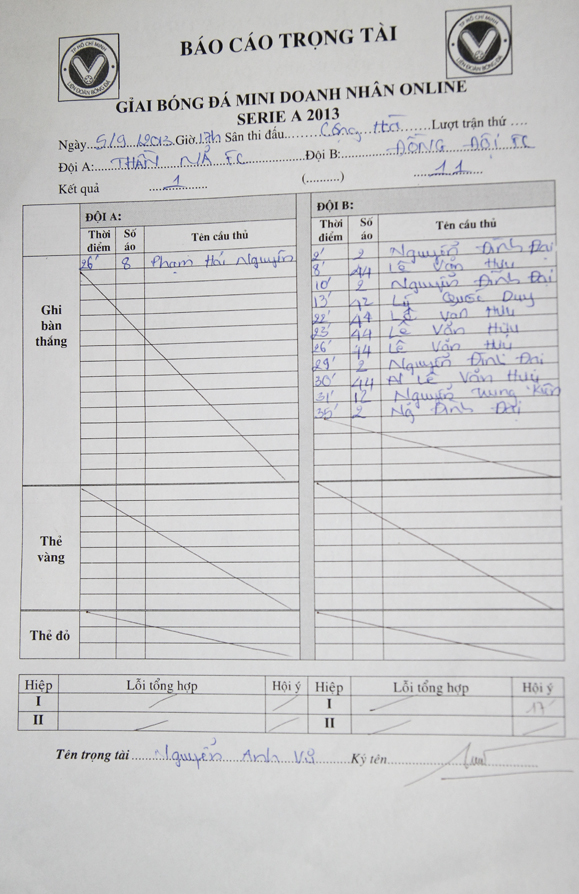 TP HỒ CHÍ MINH
LIÊN ĐOÀN BÓNG ĐÁ
BÁO CÁO TRỌNG TÀI
TP HỒ CHÍ MINH
LIÊN ĐOÀN BÓNG ĐÁ
GIẢI BÓNG ĐÁ MINI DOANH NHÂN ONLINE
SERIE A 2013
Ngày 5/9/2013 Giờ 17h Sân thi đấu Cộng Hòa Lượt trận thứ
Đội A: FC Đội B: ĐỒNG ĐỘI FC
Kết quả 1 (..........) 11
ĐỘI A: ĐỘI B:
Thời điểm Số áo Tên cầu thủ Thời điểm Số áo Tên cầu thủ
Ghi bàn thắng
26' 8 Phạm Hải Nguyên
2' 2 Nguyễn Đình Đại
8' 44 Lê Văn Hữu
10' 2 Nguyễn Đình Đại
13' 42 Lý Quốc Duy
22' 44 Lê Văn Hữu
23' 44 Lê Văn Hữu
26' 44 Lê Văn Hữu
29' 2 Nguyễn Đình Đại
30' 44 Lê Văn Hữu
31' 12 Nguyễn Trung Kiên
35' 2 Ng Đình Đại
Thẻ vàng
Thẻ đỏ
Hiệp Lỗi tổng hợp Hội ý Hiệp Lỗi tổng hợp Hội ý
I I 17'
II II
Tên trọng tài Nguyễn Anh Vũ Ký tên